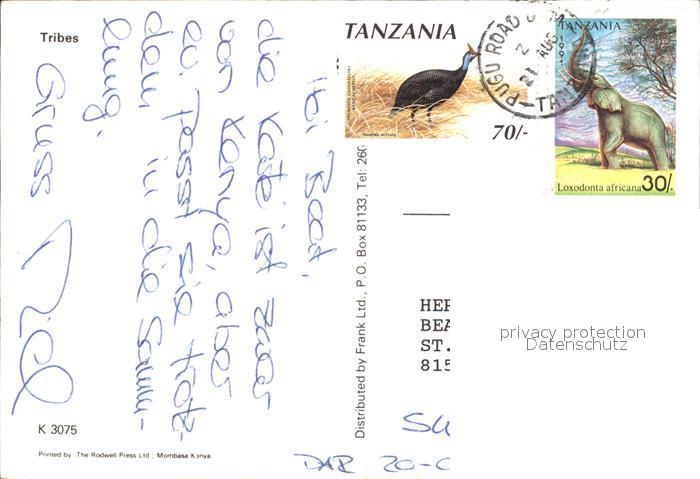 Tribes
Hi Beat,
die Karte ist zwar
von Kenya, aber
ev. passt sie trotz-
dem in die Samm-
lung.
Gruss
K 3075
Printed by: The Rodwell Press Ltd., Mombasa Kenya.
Distributed by Frank Ltd., P.O. Box 81133, Tel: 260
TANZANIA
70/-
PUGU ROAD
21 AUG
1991
TANZANIA
Loxodonta africana 30/-
HER
BEA
ST.
815
privacy protection
Datenschutz
DAR 20-